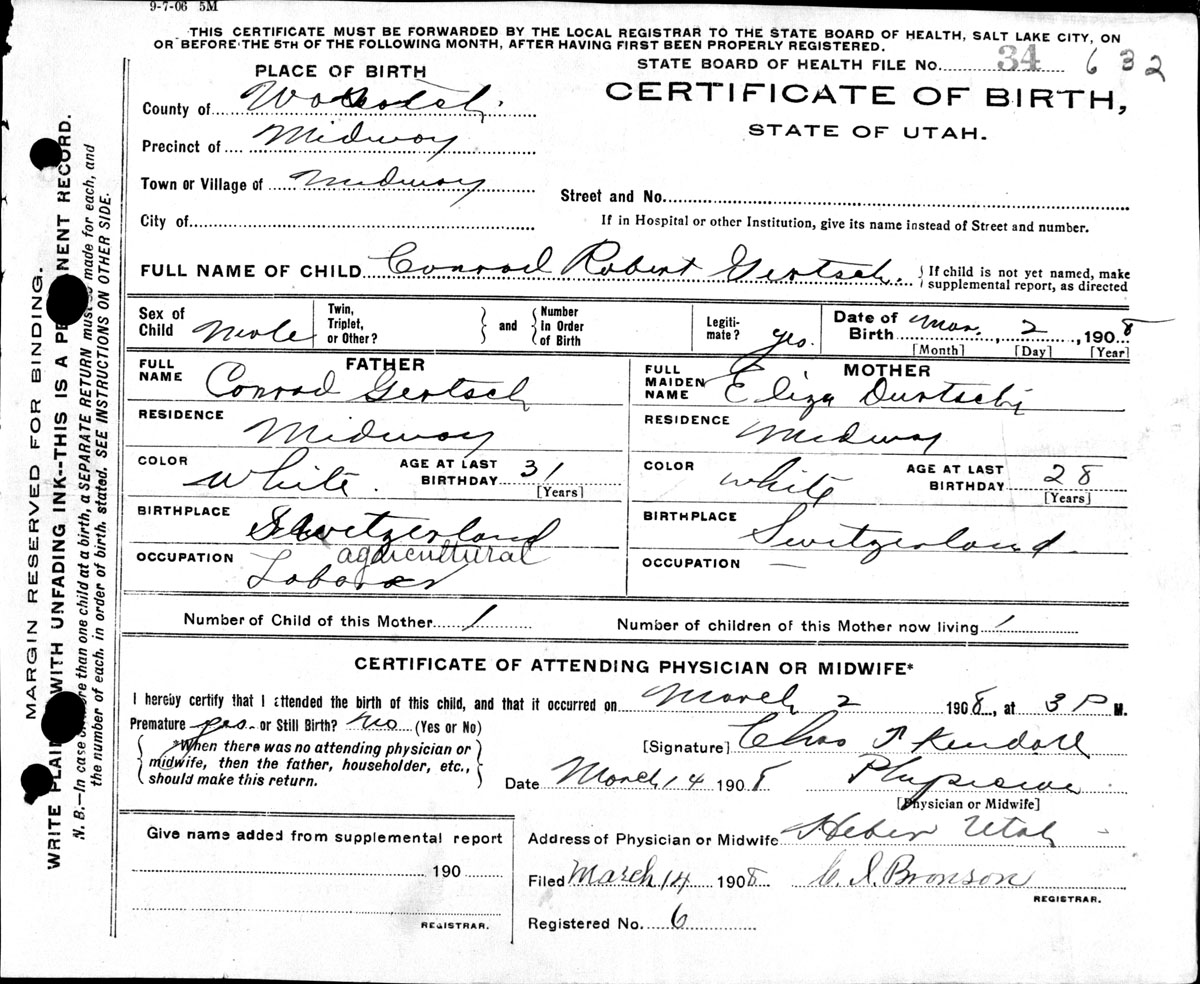 9-7-06 5M
THIS CERTIFICATE MUST BE FORWARDED BY THE LOCAL REGISTRAR TO THE STATE BOARD OF HEALTH, SALT LAKE CITY, ON
OR BEFORE THE 5TH OF THE FOLLOWING MONTH, AFTER HAVING FIRST BEEN PROPERLY REGISTERED.
STATE BOARD OF HEALTH FILE NO. 34 632
PLACE OF BIRTH
CERTIFICATE OF BIRTH,
STATE OF UTAH.
County of Wasatch
Precinct of Midway
Town or Village of Midway
Street and No.
City of
If in Hospital or other Institution, give its name instead of Street and number.
FULL NAME OF CHILD Conrad Robert Gertsch. { If child is not yet named, make
supplemental report, as directed
Sex of Child Male
Twin, Triplet, or Other? } and { Number In Order of Birth
Legitimate? yes.
Date of Birth Mar. 2, 1908
[Month] [Day] [Year]
FATHER
FULL NAME Conrad Gertsch
RESIDENCE Midway
COLOR White. AGE AT LAST BIRTHDAY 31 [Years]
BIRTHPLACE Switzerland
OCCUPATION agricultural
Laborer
MOTHER
FULL MAIDEN NAME Eliza Durtschi
RESIDENCE Midway
COLOR white AGE AT LAST BIRTHDAY 28 [Years]
BIRTHPLACE Switzerland
OCCUPATION —
Number of Child of this Mother 1 Number of children of this Mother now living 1
CERTIFICATE OF ATTENDING PHYSICIAN OR MIDWIFE*
I hereby certify that I attended the birth of this child, and that it occurred on March 2 1908, at 3 P M.
Premature yes. or Still Birth? No (Yes or No)
{ *When there was no attending physician or
midwife, then the father, householder, etc.,
should make this return. }
[Signature] Chas Kendall
Date March 14 1908 Physician
[Physician or Midwife]
Give name added from supplemental report
190
REGISTRAR.
Address of Physician or Midwife Heber Utah
Filed March 14 1908 C. I. Bronson
REGISTRAR.
Registered No. 6
MARGIN RESERVED FOR BINDING.
WRITE PLAIN WITH UNFADING INK--THIS IS A PE NENT RECORD.
N. B.—In case more than one child at a birth, a SEPARATE RETURN must be made for each, and
the number of each, in order of birth, stated. SEE INSTRUCTIONS ON OTHER SIDE.